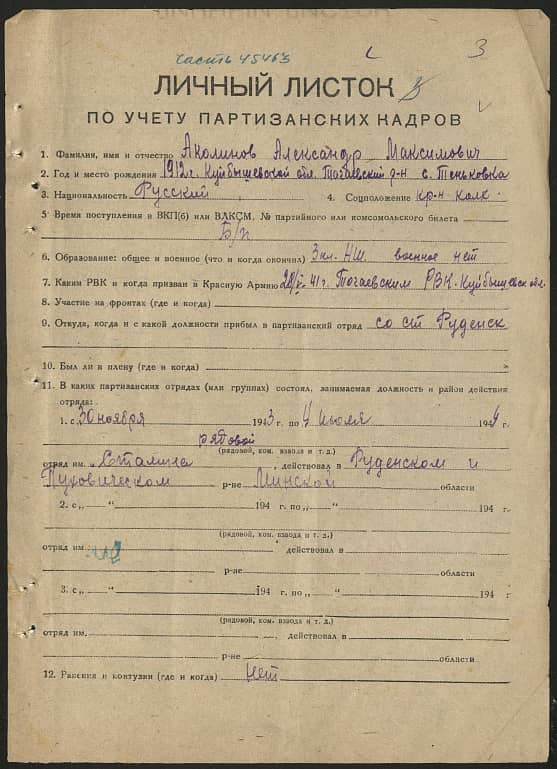 часть 45463
3
ЛИЧНЫЙ ЛИСТОК
ПО УЧЕТУ ПАРТИЗАНСКИХ КАДРОВ
1. Фамилия, имя и отчество Аколинов Александр Максимович
2. Год и место рождения 1912 г. Куйбышевской обл. Тогаевский р-н с. Теньковка
3. Национальность Русский 4. Соцположение кр-н колх.
5. Время поступления в ВКП(б) или ВЛКСМ, № партийного или комсомольского билета
Б/п
6. Образование: общее и военное (что и когда окончил) 3 кл. НШ. военное нет
7. Каким РВК и когда призван в Красную Армию 41 г. Тогаевским РВК. Куйбышевск обл.
8. Участие на фронтах (где и когда)
9. Откуда, когда и с какой должности прибыл в партизанский отряд со ст Руденск
10. Был ли в плену (где и когда) »
11. В каких партизанских отрядах (или группах) состоял, занимаемая должность и район действия
отряда:
1. с „30 ноября 1943 г. по 4 июля 1944
рядовой
(рядовой, ком. взвода и т. д.)
отряд им. „Сталина , действовал в Руденском и
Пуховическом р-не Минской области
2. с „ “ 194 г. по „ “ 194 г.
(рядовой, ком. взвода и т. д.)
отряд им. , действовал в
р-не области
3. с „ “ 194 г. по „ “ 194 г
(рядовой, ком. взвода и т. д.)
отряд им. , действовал в
р-не области.
12. Ранения и контузии (где и когда) нет